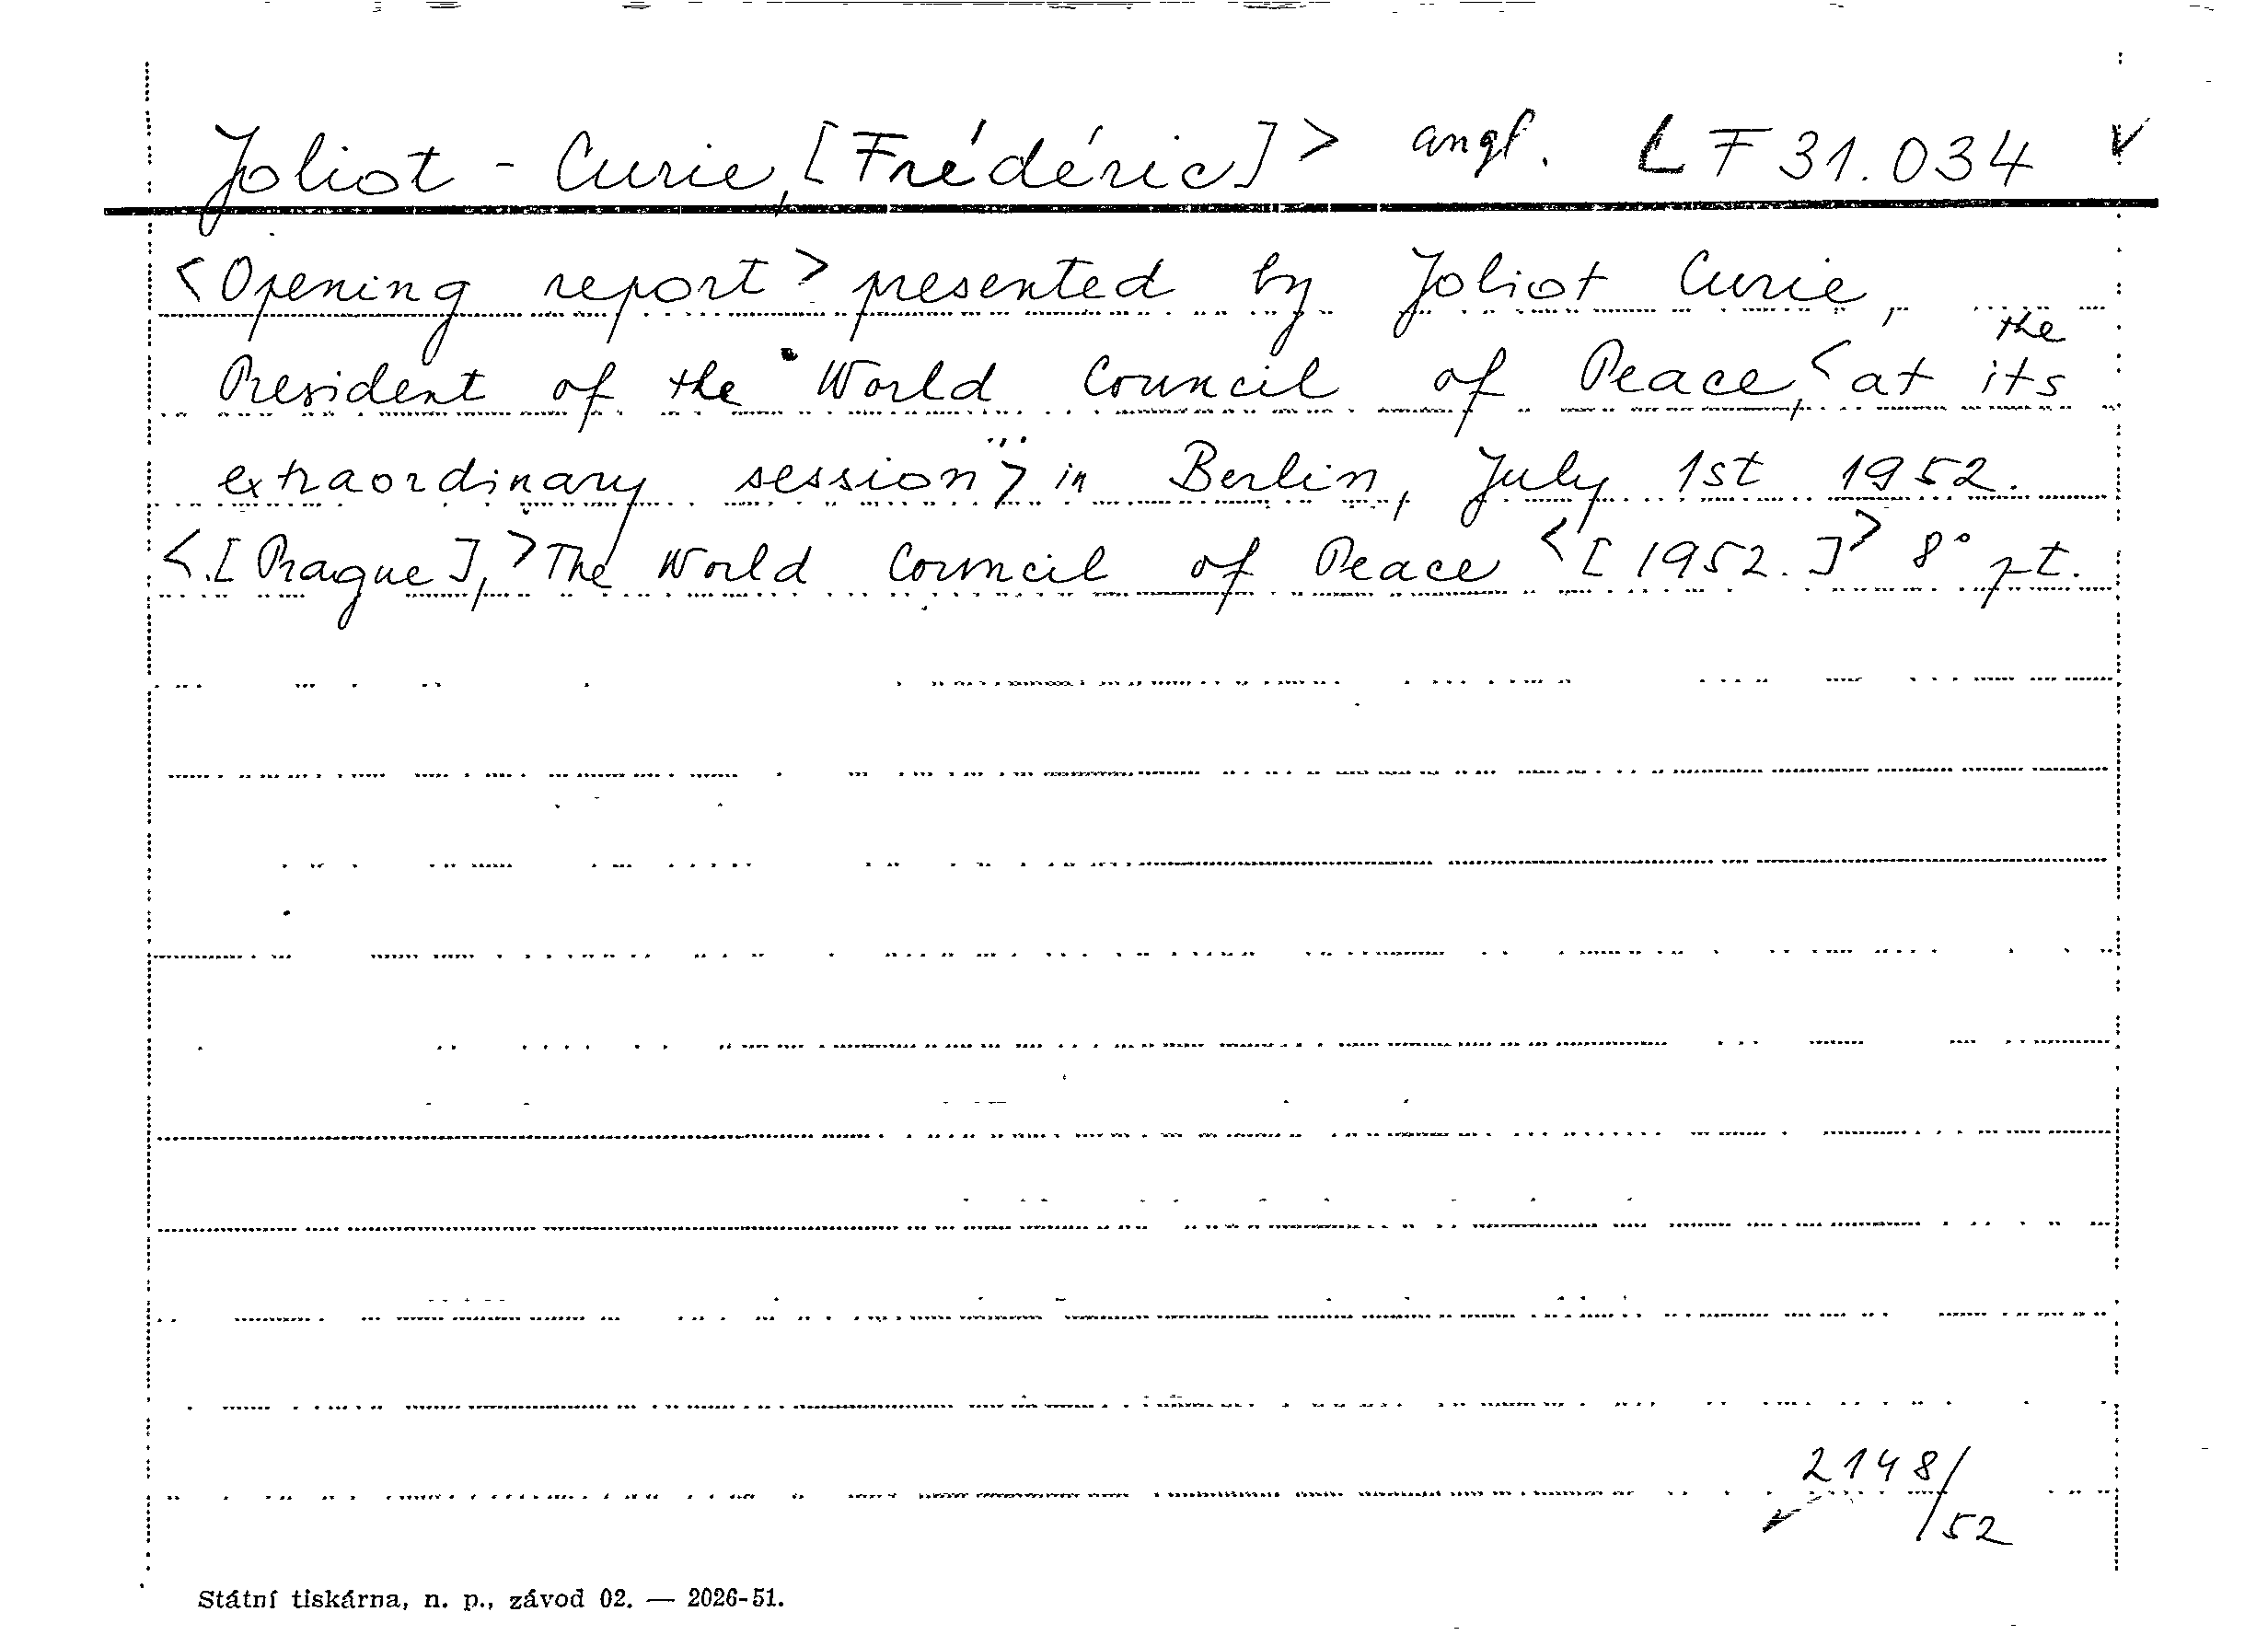 Joliot - Curie, [Frédéric]> angl. LF 31.034 v
<Opening report> presented by Joliot Curie, the
President of the World Council of Peace, <at its
extraordinary session...> in Berlin, July 1st 1952.
<[Prague],> The World Council of Peace <[1952.]> 8°
2148/52
Státní tiskárna, n. p., závod 02. — 2026-51.